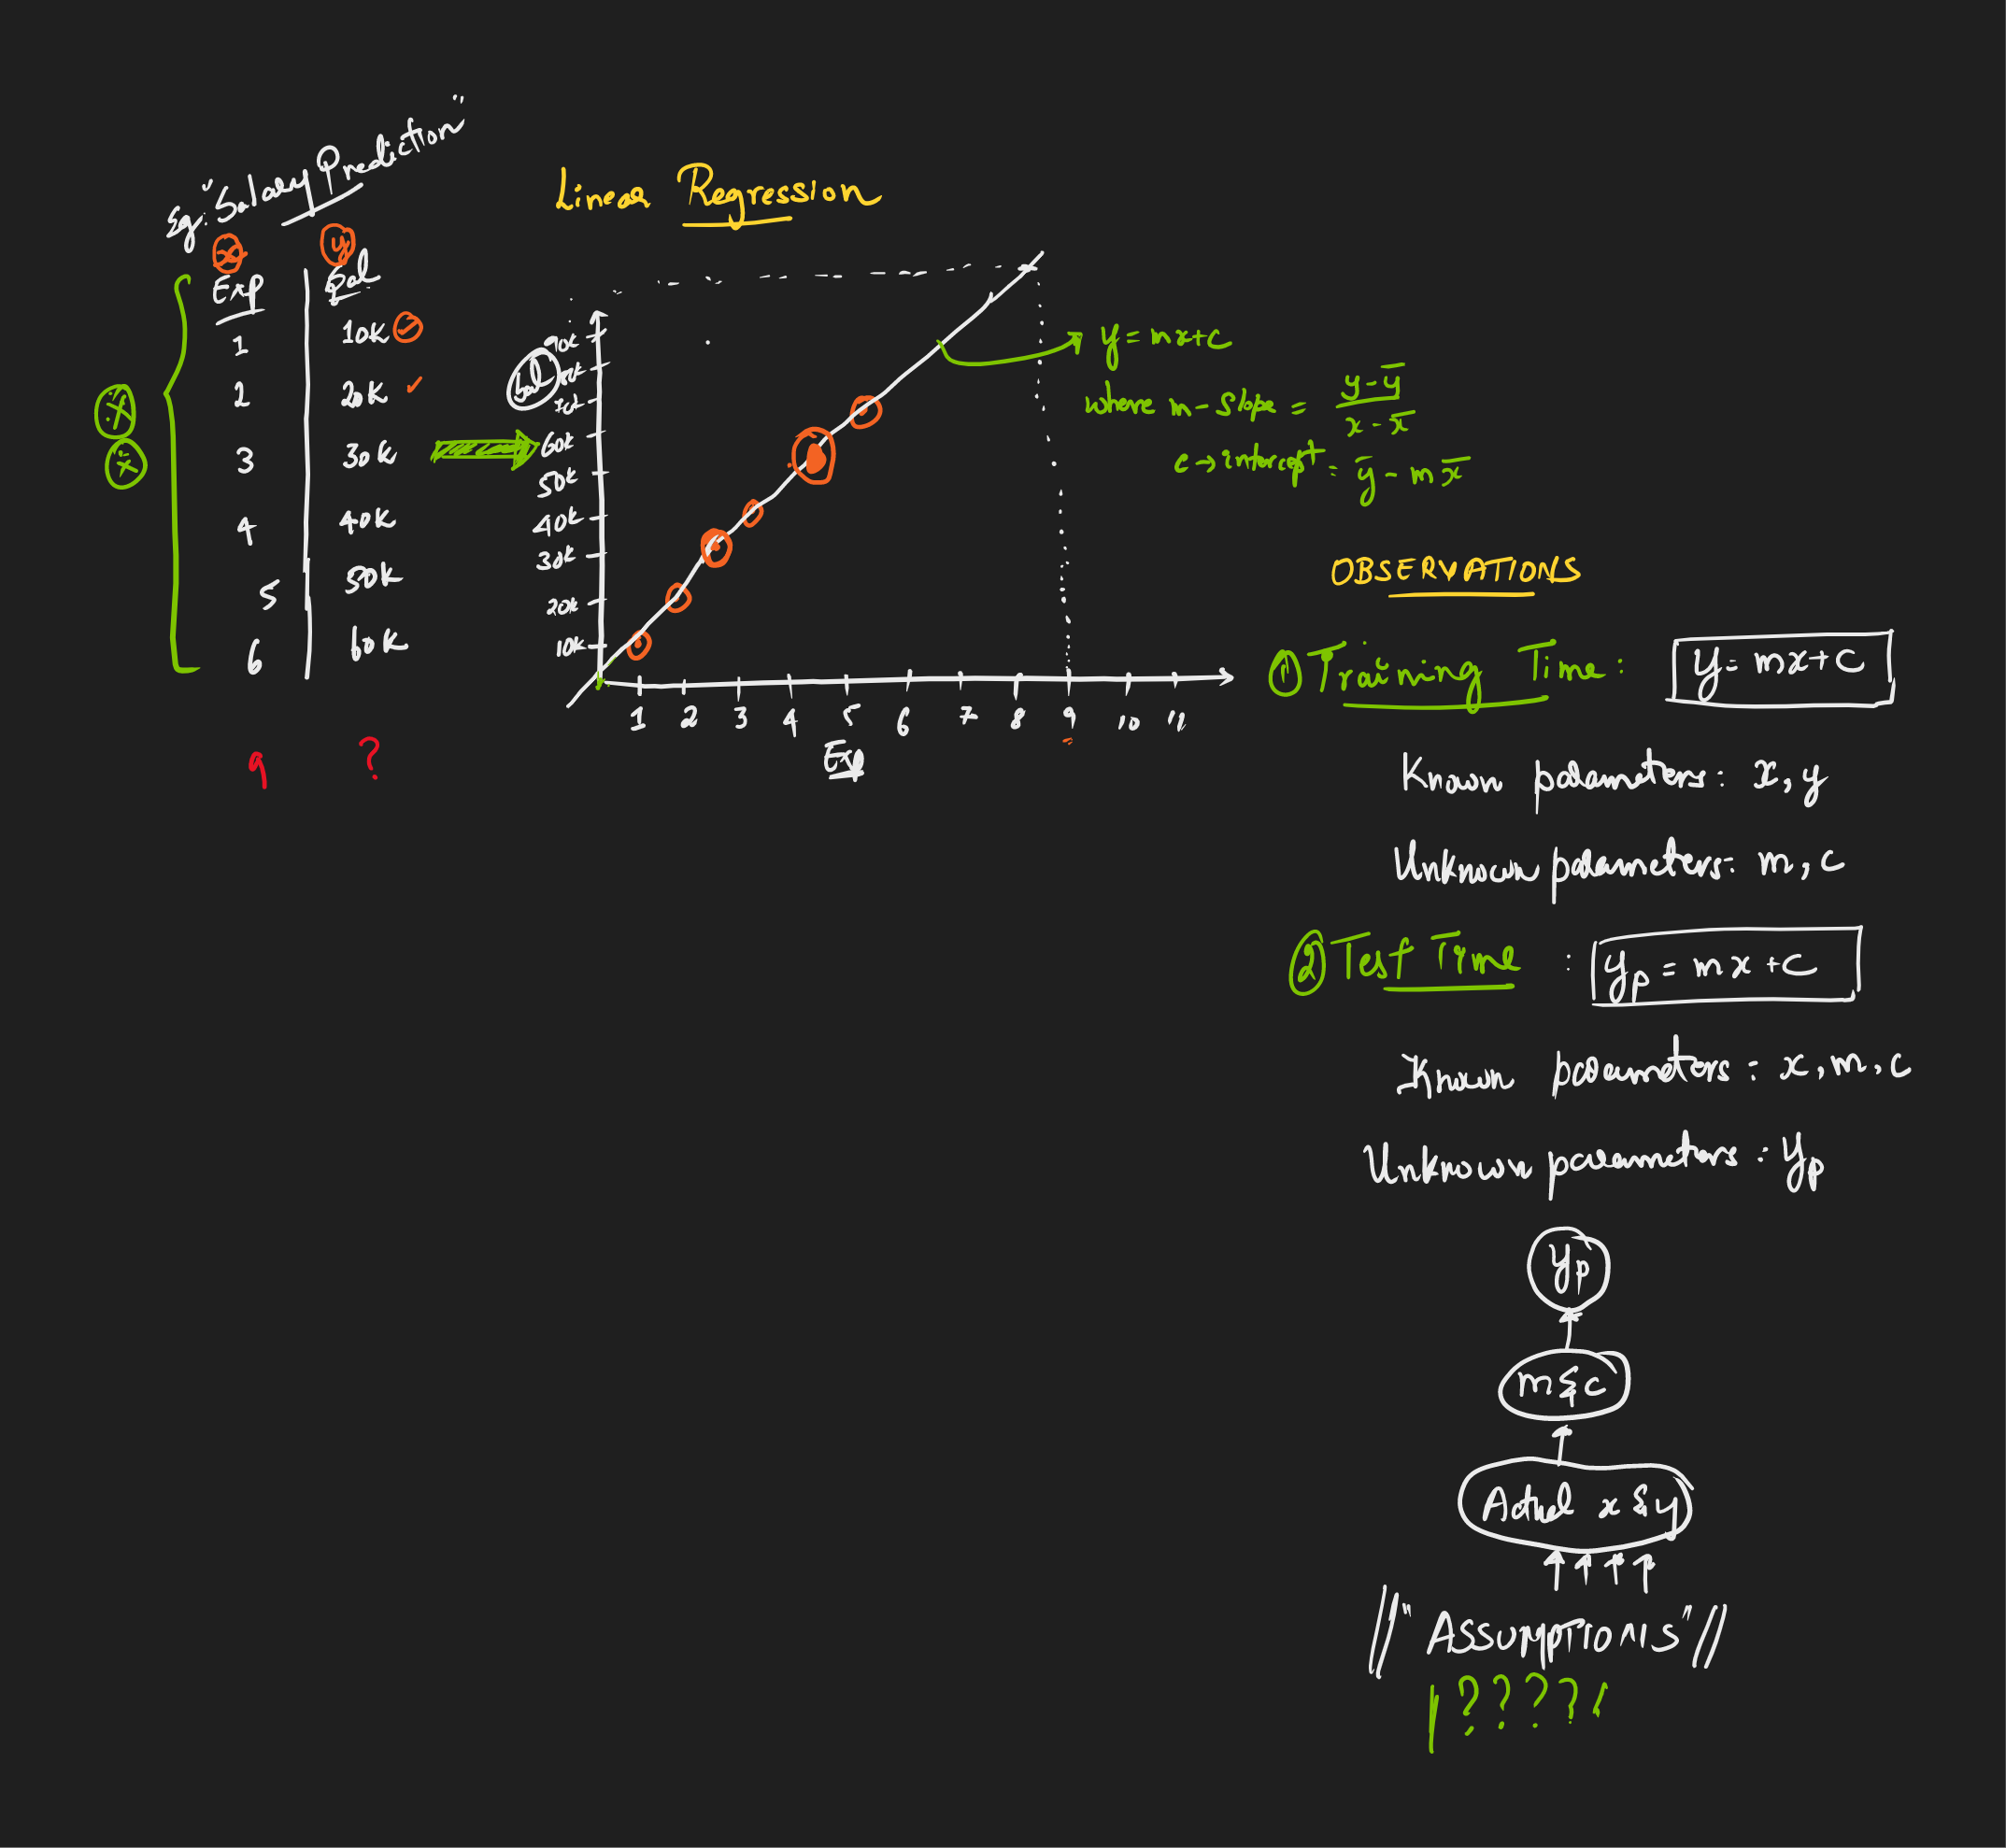 Eg: "Salary Prediction"
Linear Regression
x y
Exp Sal
1 10K
2 20K
3 30K
4 40K
5 50K
6 60K
9 ?
Sal
90k
80k
70k
60k
50k
40k
30k
20k
10k
1 2 3 4 5 6 7 8 9 10 11
Exp
y = mx+c
where m - slope = y - y̅ / x - x̅
c → intercept = y̅ - m x̅
OBSERVATIONS
① Training Time: y = mx+c
Known parameters: x, y
Unknown parameters: m, c
② Test Time : yp = mx+c
Known parameters: x, m, c
Unknown parameters: yp
yp
m & c
Actual x & y
"ASSUMPTIONS"
?????